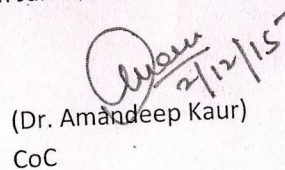 2/12/15
(Dr. Amandeep Kaur)
CoC